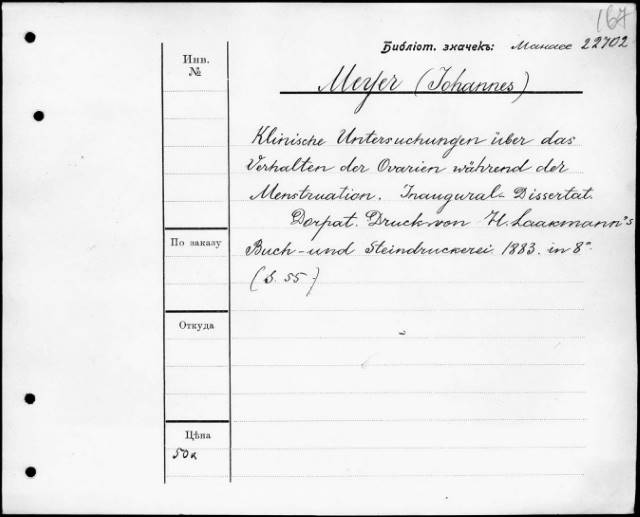 167
Библіот. значекъ: Манассе 22702
Инв.
№
Meyer (Johannes)
Klinische Untersuchungen über das
Verhalten der Ovarien während der
Menstruation. Inaugural-Dissertat.
Dorpat. Druck von H. Laakmann's
По заказу
Buch- und Steindruckerei. 1883. in 8°.
(S. 55.)
Откуда
Цѣна
50к